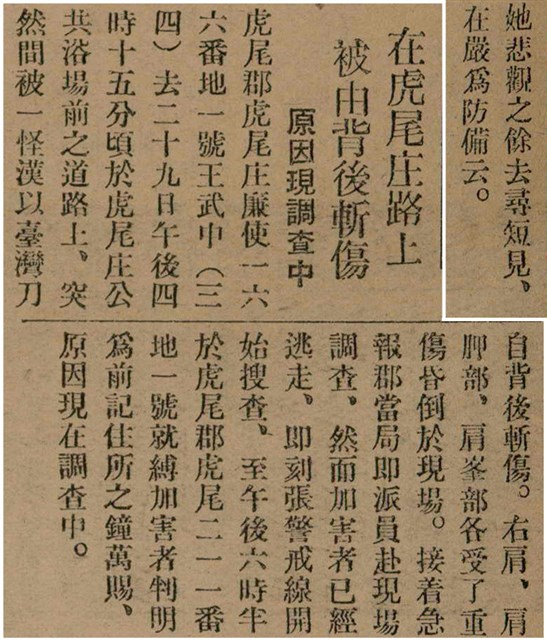 她悲觀之餘去尋短見、
在嚴爲防備云。
在虎尾庄路上
被由背後斬傷
原因現調查中
虎尾郡虎尾庄廉使一六
六番地一號王武中（三
四）去二十九日午後四
時十五分頃於虎尾庄公
共浴場前之道路上、突
然間被一怪漢以臺灣刀
自背後斬傷。右肩、肩
胛部、肩峯部各受了重
傷昏倒於現場。接着急
報郡當局即派員赴現場
調查、然而加害者已經
逃走、即刻張警戒線開
始搜查、至午後六時半
於虎尾郡虎尾二一一番
地一號就縛加害者判明
爲前記住所之鐘萬賜、
原因現在調查中。